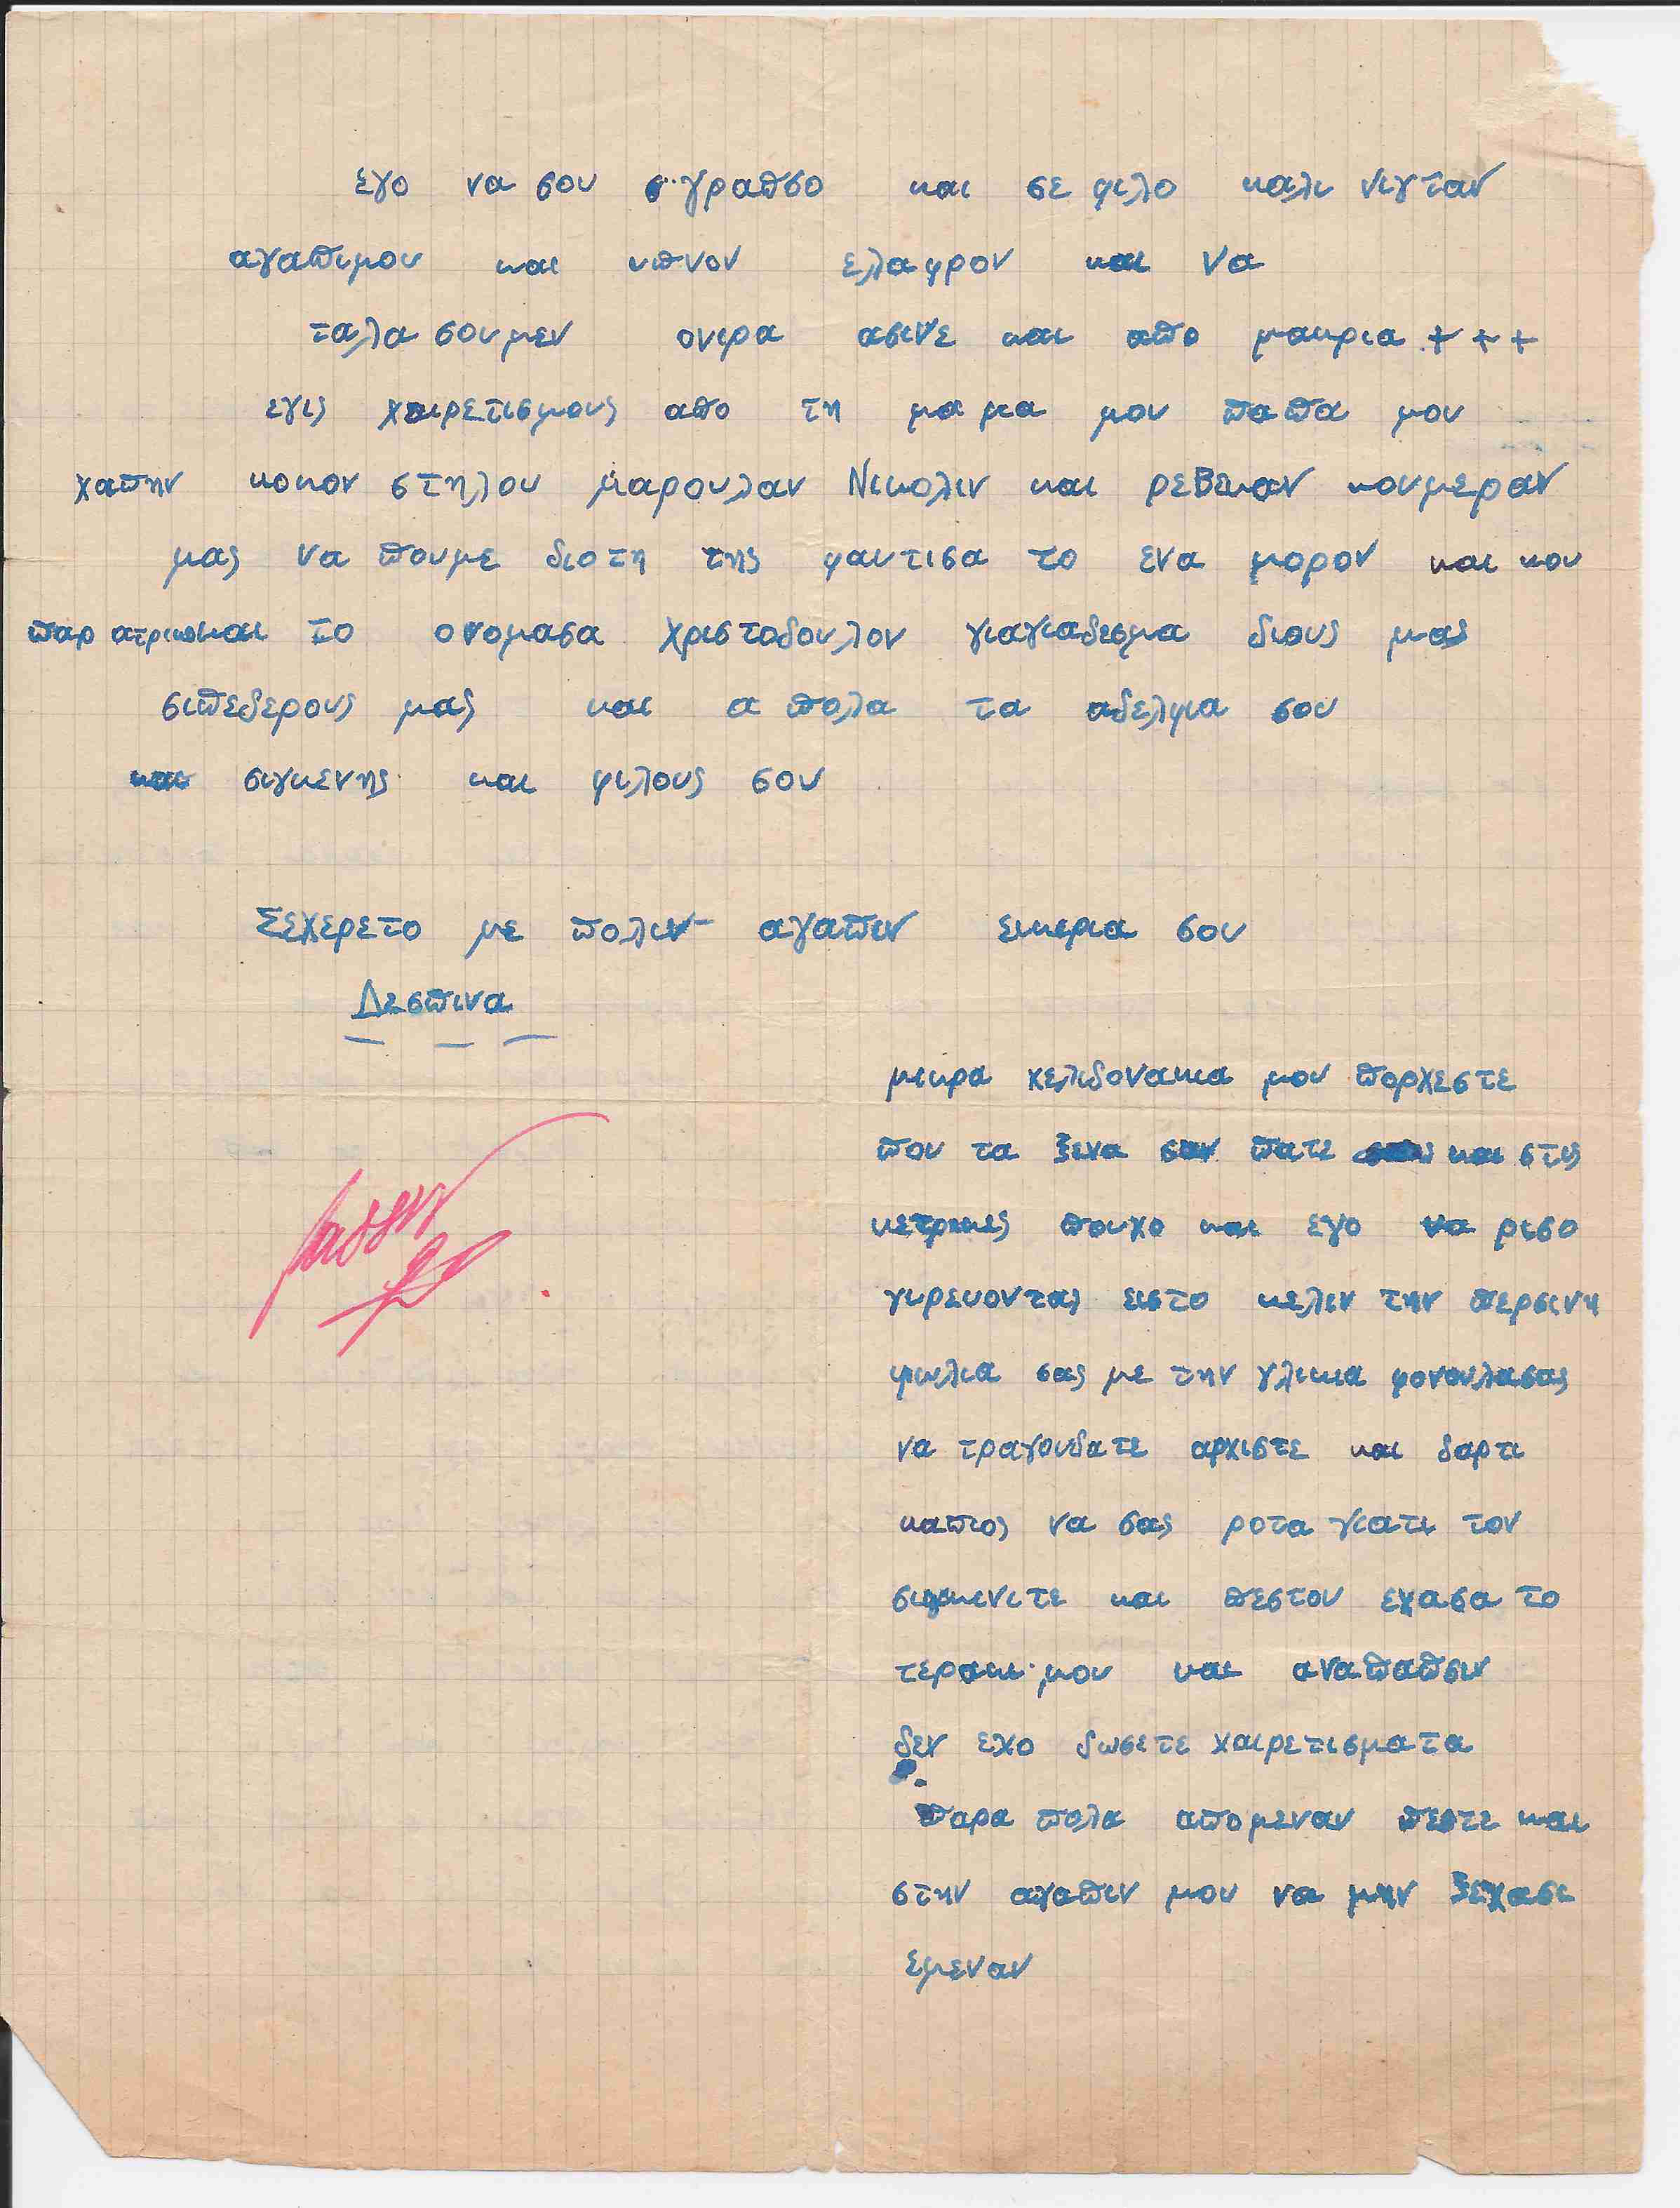 εγο να σου γραπσο και σε φιλο καλι νιγταν
αγαπιμου και υπνον ελαφρον και να
ταλα σουμεν ονιρα ασινε και απο μακρια + + +
εγις χαιρετισμους απο τη μαμα μου παπα μου
χαπην κοκον στηλου μαρουλαν Νικολιν και ρεβεκαν κουμεραν
μας να πουμε διοτη της φαυτισα το ενα μορον και κου
το ονομασα χριστοδουλον γιαγιαδεσμα διους μας
σιπεδερους μας και α πολα τα αδελφια σου
και σιγκενης και φιλους σου
Σεχερετο με πολιν αγαπιν εικερια σου
Δεσπινα
μικρα χελιδονακια μου πορχεστε
που τα ξενα σαν πατε και στις
πουχο και εγο να ρισο
γυρευοντας ειστο κελιν την περσινη
φωλια σας με την γλικια φονουλασας
να τραγουδατε αρχιστε και δαρτι
καπιος να σας ροτα γιατι τον
και πεστου εχασα το
τερακι μου και αναπαπσιν
δεν εχο δωσετε χαιρετισματα
παρα πολα απομεναν πεστε και
στην αγαπιν μου να μην ξεχασι
εμεναν